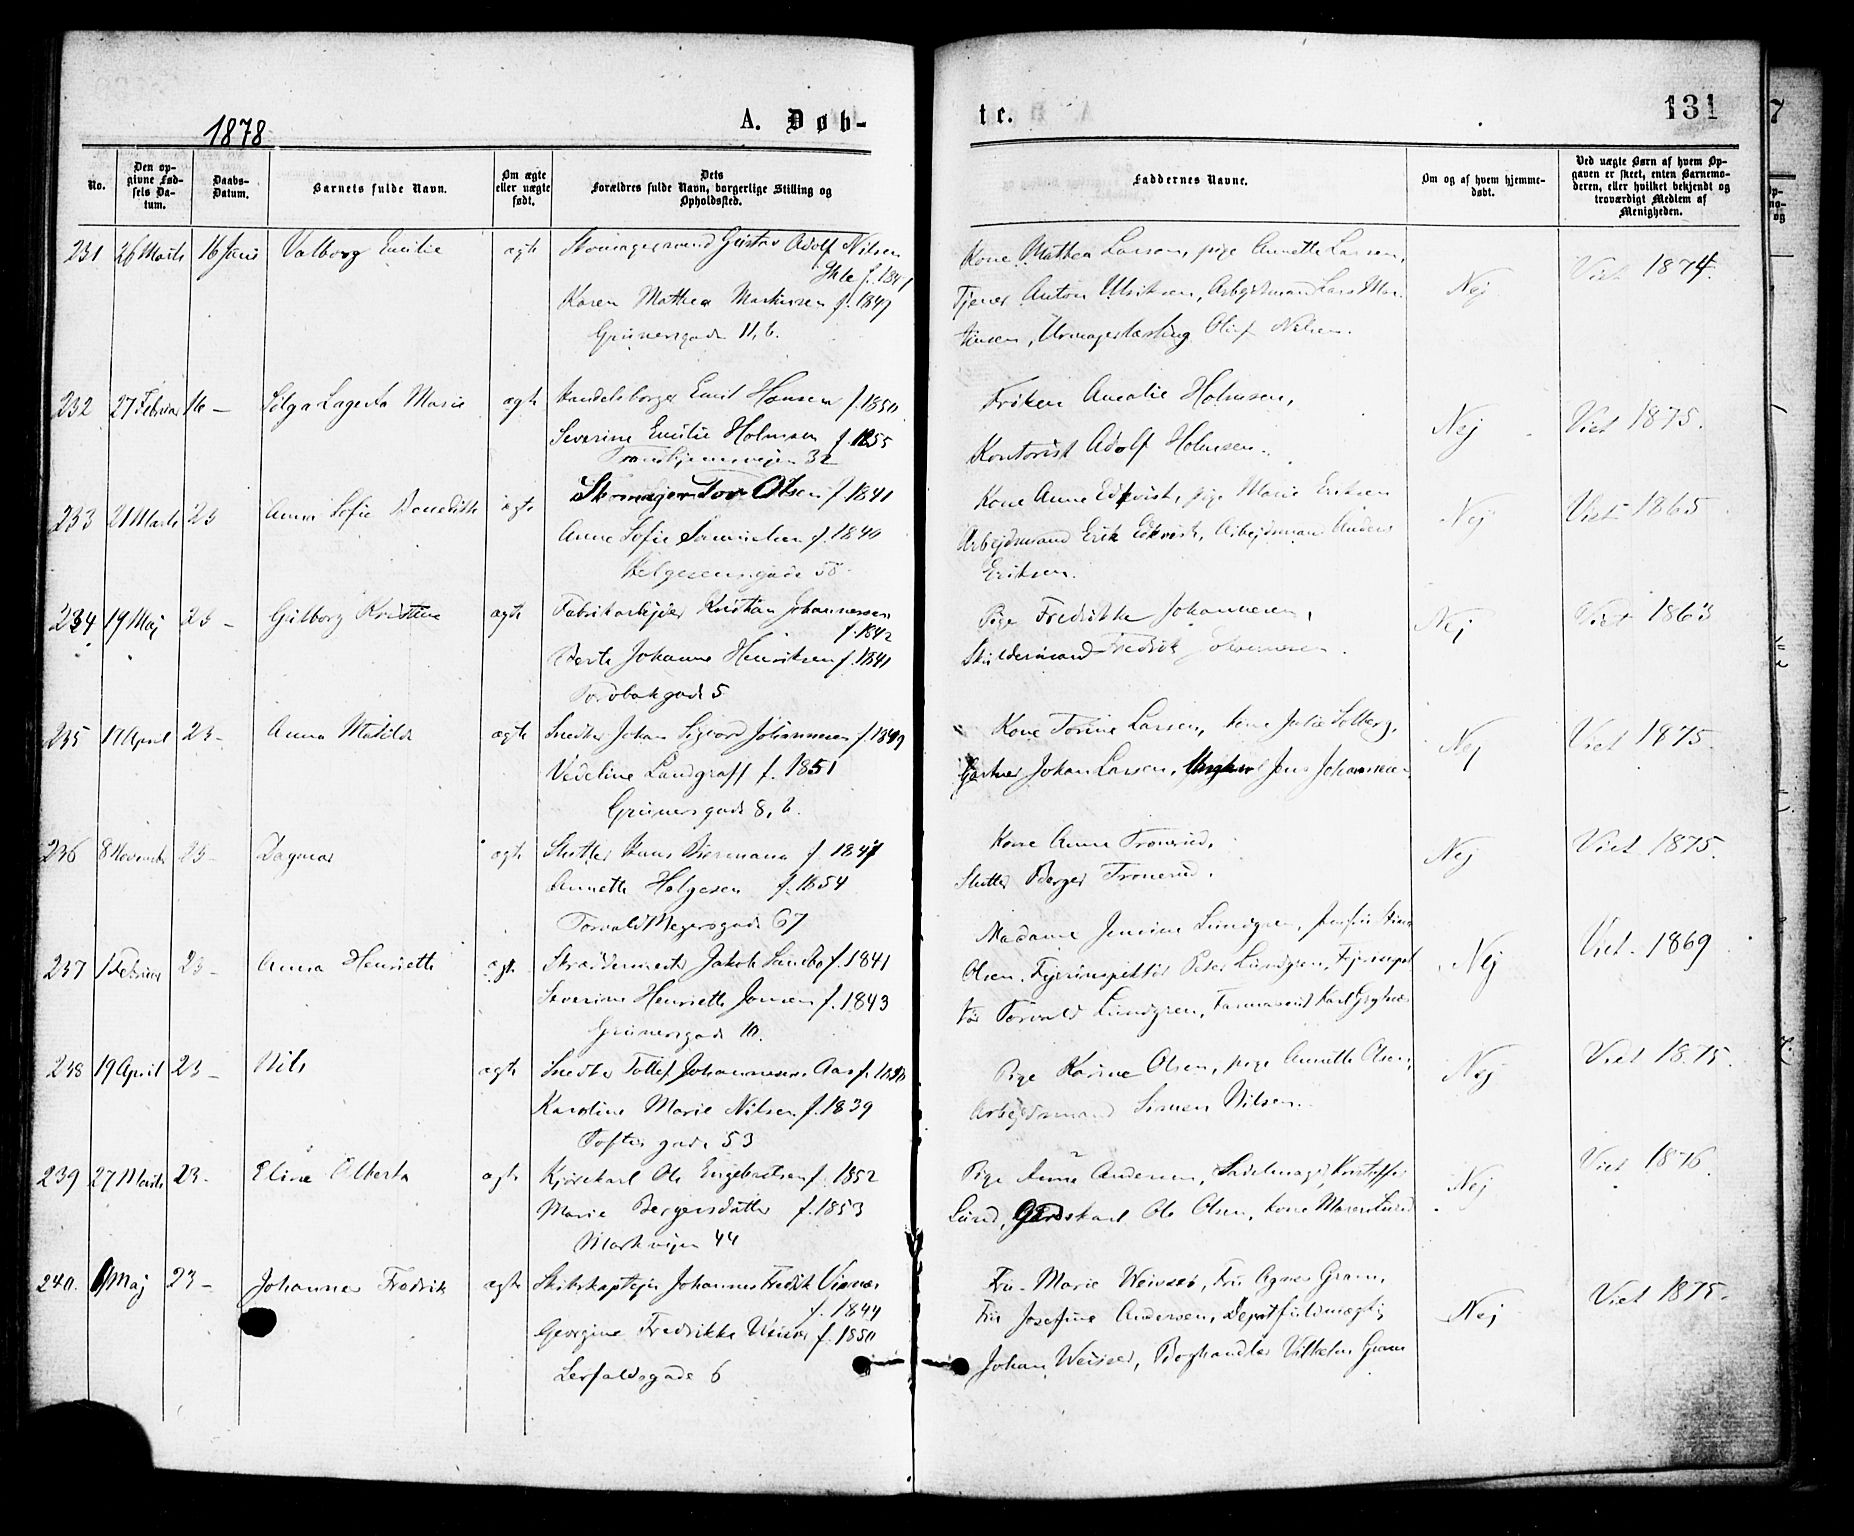 1878
A. Døb-
te.
131
No.
Den op-
givne Fød-
sels Da-
tum.
Daabs-
Datum.
Barnets fulde Navn.
Om ægte
eller uægte
født.
Dets
Forældres fulde Navn, borgerlige Stilling og
Opholdssted.
Faddernes Navne.
Om og af hvem hjemme-
døbt.
Ved uægte Børn af hvem Op-
gaven er skeet, enten Barnemo-
deren, eller hvilket bekjendt og
troværdigt Medlem af
Menigheden.
231 26 Marts 16 Juni Valborg Emilie ægte Skomagersvend Gustav Adolf Nilsen
Karen Mathea Martinsen f. 1847
Grünersgade 11, b.
Kone Mathea Larsen, pige Annette Larsen,
Tjener Anton Ulriksen, Arbejdsmand Lars Mar-
tinsen, Urmagerlærling Oluf Nilsen.
Nej
Viet 1874.
232 27 Februar 16 – Solga Lagerta Marie ægte Handelsborger Emil Hansen f. 1850
Severine Emilie Holmsen f. 1855
Trondhjemsvejen 32
Frøken Amalie Holmsen,
Kontorist Adolf Holmsen.
Nej
Viet 1875.
233 21 Marts 23 Anna Sofie Benedikte ægte Olsen f. 1841
Anne Sofie Samuelsen f. 1840
Helgesensgade 58.
Kone Anne Edkvist, pige Marie Eriksen
Arbejdsmand Erik Edkvist, Arbejdsmand Anders
Eriksen.
Nej
Viet 1865
234 19 Maj 23 – Gulborg Kristine ægte Fabrikarbejder Kristian Johannessen
f. 1842
Berte Johanne Henriksen f. 1841
gade 5
Pige Fredrikke Johannesen,
Fredrik Johannesen.
Nej
Viet 1863
235 17 April 23 – Anna Matilde ægte Snedker Johan Sigvard Johannesen f. 1849
Vedeline Landgraff f. 1851
Grünersgade 8, b.
Kone Torine Larsen, kone Julie Solberg,
Gartner Johan Larsen, Ungkarl Jens Johannesen
Nej
Viet 1875.
236 8 November 23 – Dagmar ægte Slutter Hans f. 1847
Annette Helgesen f. 1854
Torvald Meyersgade 67
Kone Anne Tronerud,
Slutter Berger Tronerud.
Nej
Viet 1875.
237 1 Februar 23 – Anna Henriette ægte Skræddermester Jakob Sandbo f. 1841
Severine Henriette Jonsen f. 1843
Grünersgade 10.
Madame Jensine Lundgren,
Olsen, Fyrinspektør Peter Lundgren,
tør Torvald Lundgren, Farmaseut Karl
Nej
Viet 1869
238 19 April 23 – Nils ægte Snedker Tollef Johannesen Aas
Karoline Marie Nilsen f. 1839
Toftes gade 53
Pige Karine Olsen, pige Annette Olsen,
Arbejdsmand Simen Nilsen.
Nej
Viet 1875.
239 27 Marts 23 – Eline Alberta ægte Kjørekarl Ole Engebretsen f. 1852
Marie Bergersdatter f. 1853
Markvejen 44
Pige Anne Andersen, Sadelmager Kristoffer
Lund, Gårdskarl Ole Olsen, kone Maren Lund
Nej
Viet 1876.
240. Maj 23 – Johannes Fredrik ægte Skibskaptejn Johannes Fredrik
f. 1844
Georgine Fredrikke f. 1850
Lerfaldsgade 6
Fru Marie, Fru Agnes Gram,
Fru Josefine Andersen,
Johan, Boghandler Vilhelm Gram
Nej
Viet 1875.